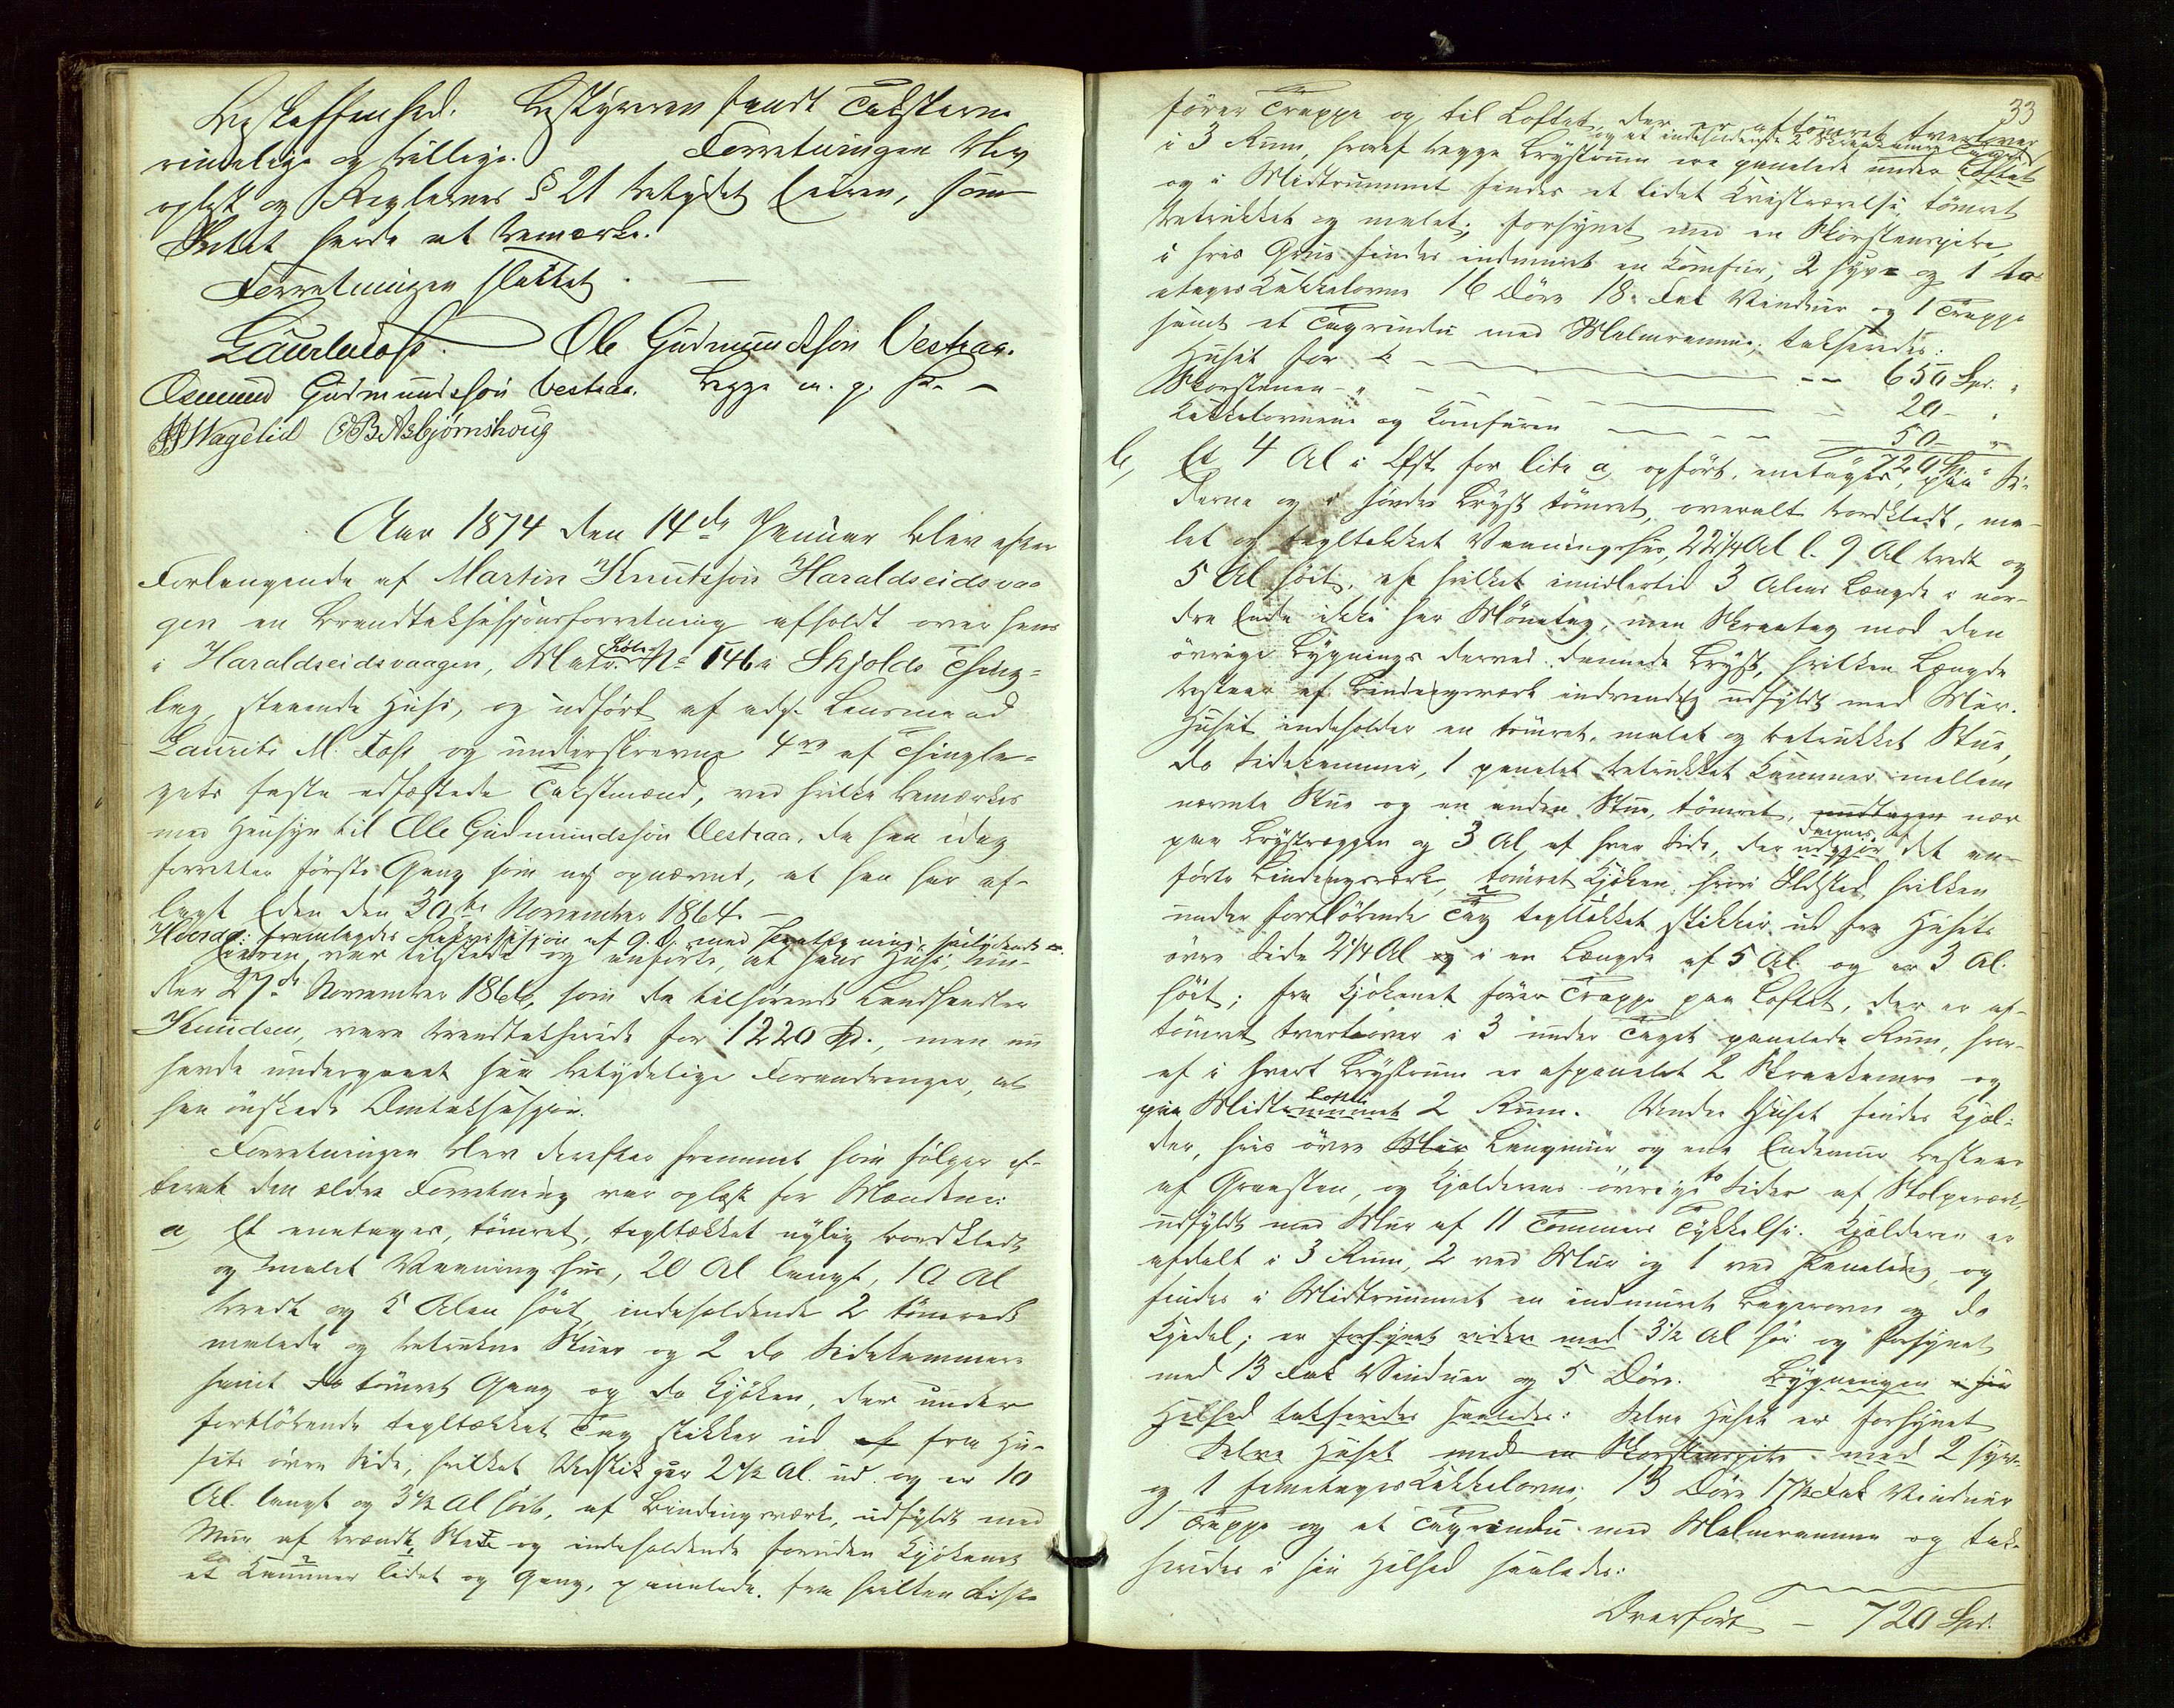 Beskaffenhed. Bestyreren fandt Taksterne
rimelige og billige. Forretningen blev
oplæst og Reglernes § 21 betydet Eieren, som
Intet havde at bemærke.
Forretningen sluttet.
Laur. M. Foss. Ole Gudmundsøn Vestraa.
Osmund Gudmundsøn Vestraa. begge m. p. P.
Vagelid O B Asbjørnshoug
Aar 1874 den 14de Januar blev efter
Forlangende af Martin Knutsøn Haraldseidsvaa-
gen en Brandtaksasjonsforretning afholdt over hans
i Haraldseidsvaagen, Matr. No 146 i Skjolds Thing-
lag staaende Huse, og udført af adj. Lensmand
Laurits M. Foss og underskrevne 4re af Thingla-
gets faste edfæstede Takstmænd, ved hvilke bemærkes
med Hensyn til Ole Gudmundsøn Vestraa, da han idag
forretter første Gang som ny opnævnt, at han har af-
lagt Eden den 30te November 1864.
Hvorda: fremlagdes Rekvisisjon af g. D. med Paategning, saalydende
Eieren, var tilstede og anførte, at hans Huse, un-
der 27de November 1866, som da tilhørende Landhandler
Knudsen, vare brandtakserede for 1220 Spd., men nu
havde undergaaet saa betydelige Forandringer, at
han ønskede Omtaksasjon.
Forretningen blev derefter fremmet som følger ef-
terat den ældre Forretning var oplæst for Mændene:
a, Et enetages, tømret, tegltækket nylig bordklædt
og malet Vaaningshus, 20 Al langt, 10 Al
bredt og 5 Alen høit, indeholdende 2 tømrede
malede og betrukne Stuer og 2 do Sidekammere
samt do tømret Gang og do Kjøken, der under
fortløbende tegltækket Tag stikker ud af fra Hu-
sets øvre Side, hvilket Udstik gaar 2½ Al. ud og er 10
Al. langt og 3½ Al høit, af Bindingsværk, udfyldt med
Mur af brændt Sten og indeholdende foruden Kjøkenet
et Kammer lidet og Gang, panelede. fra hvilken sidste
33
fører Trappe og til Loftet, der er aftømret tvertover
og et indeholdende 2 Skraakamre
i 3 Rum, hvoraf begge Brystrum ere panelede under Taget
og i Midtrummet findes et lidet Kvistværelse, tømret
betrukket og malet, forsynet med en Skorstenspibe,
i hvis Grue findes indmuret en Komfur, 2 hjv og 1 to-
etages Kakkelovne 16 Døre 18 Fak Vinduer og 1 Trappe
samt et Tagvindu med Malmramme, takseredes:
Huset for 650 Spd. "
Skorstenen " 20 - "
Kakkelovnene og Komfuren 50 - "
720 Spd. "
b, Et 4 Al i Øst for litr a, opført, enetages, paa Si-
derne og i søndre Bryst tømret, overalt bordklædt, ma-
let og tegltækket Vaaningshus, 22¼ Al l. 9 Al bredt og
5 Al høit, af hvilket imidlertid 3 Alens Længde i nor-
dre Ende ikke har Mønetag, men Skraatag mod den
øvrige Bygnings derved dannede Bryst, hvilken Længde
bestaar af Bindingsværk indvendig udfyldt med Mur.
Huset indeholder en tømret, malet og betrukket Stue,
do Sidekammer, 1 panelet betrukket Kammer mellem
nævnte Stue og en anden Stue, tømret, undtagen nær
paa Brystvæggen og 3 Al af hver Side, der udgjør dannes af det an-
førte Bindingsværk, tømret Kjøken, hvori Ildsted hvilken
under fortløbende Tag tegltækket stikker ud fra Husets
øvre Side 2¼ Al og i en Længde af 5 Al. og er 3 Al.
høit; fra Kjøkenet fører Trappe paa Loftet, der er af-
tømret tvertover i 3 under Taget panelede Rum, hvor-
af i hvert Brystrum er afpanelet 2 Skraakamre og
paa Midtrummet Loftet 2 Rum. Under Huset findes Kjæl-
der, hvis øvre Mur Langmur og ene Endemur bestaar
af Graasten, og Kjælderens øvrige to Sider af Stolpeværk,
udfyldt med Mur af 11 Tommers Tykkelse. Kjælderen er
afdelt i 3 Rum, 2 ved Mur og 1 ved Paneling, og
findes i Midtrummet en indmuret Bagerovn og do
Kjedel; er forsynet viden med 3½ Al høi og forsynet
med 13 Fak Vinduer og 5 Døre. Bygningen i sin
Helhed takseredes saaledes: Selve Huset er forsynet
Selve Huset med en Skorstenspibe med 2 hjv.
og 1 femetages Kakkelovne, 13 Døre 17½ Fak Vinduer
1 Trappe og et Tagvindu med Malmramme og tak-
seredes i sin Helhed saaledes:
Overført - 720 Spd.